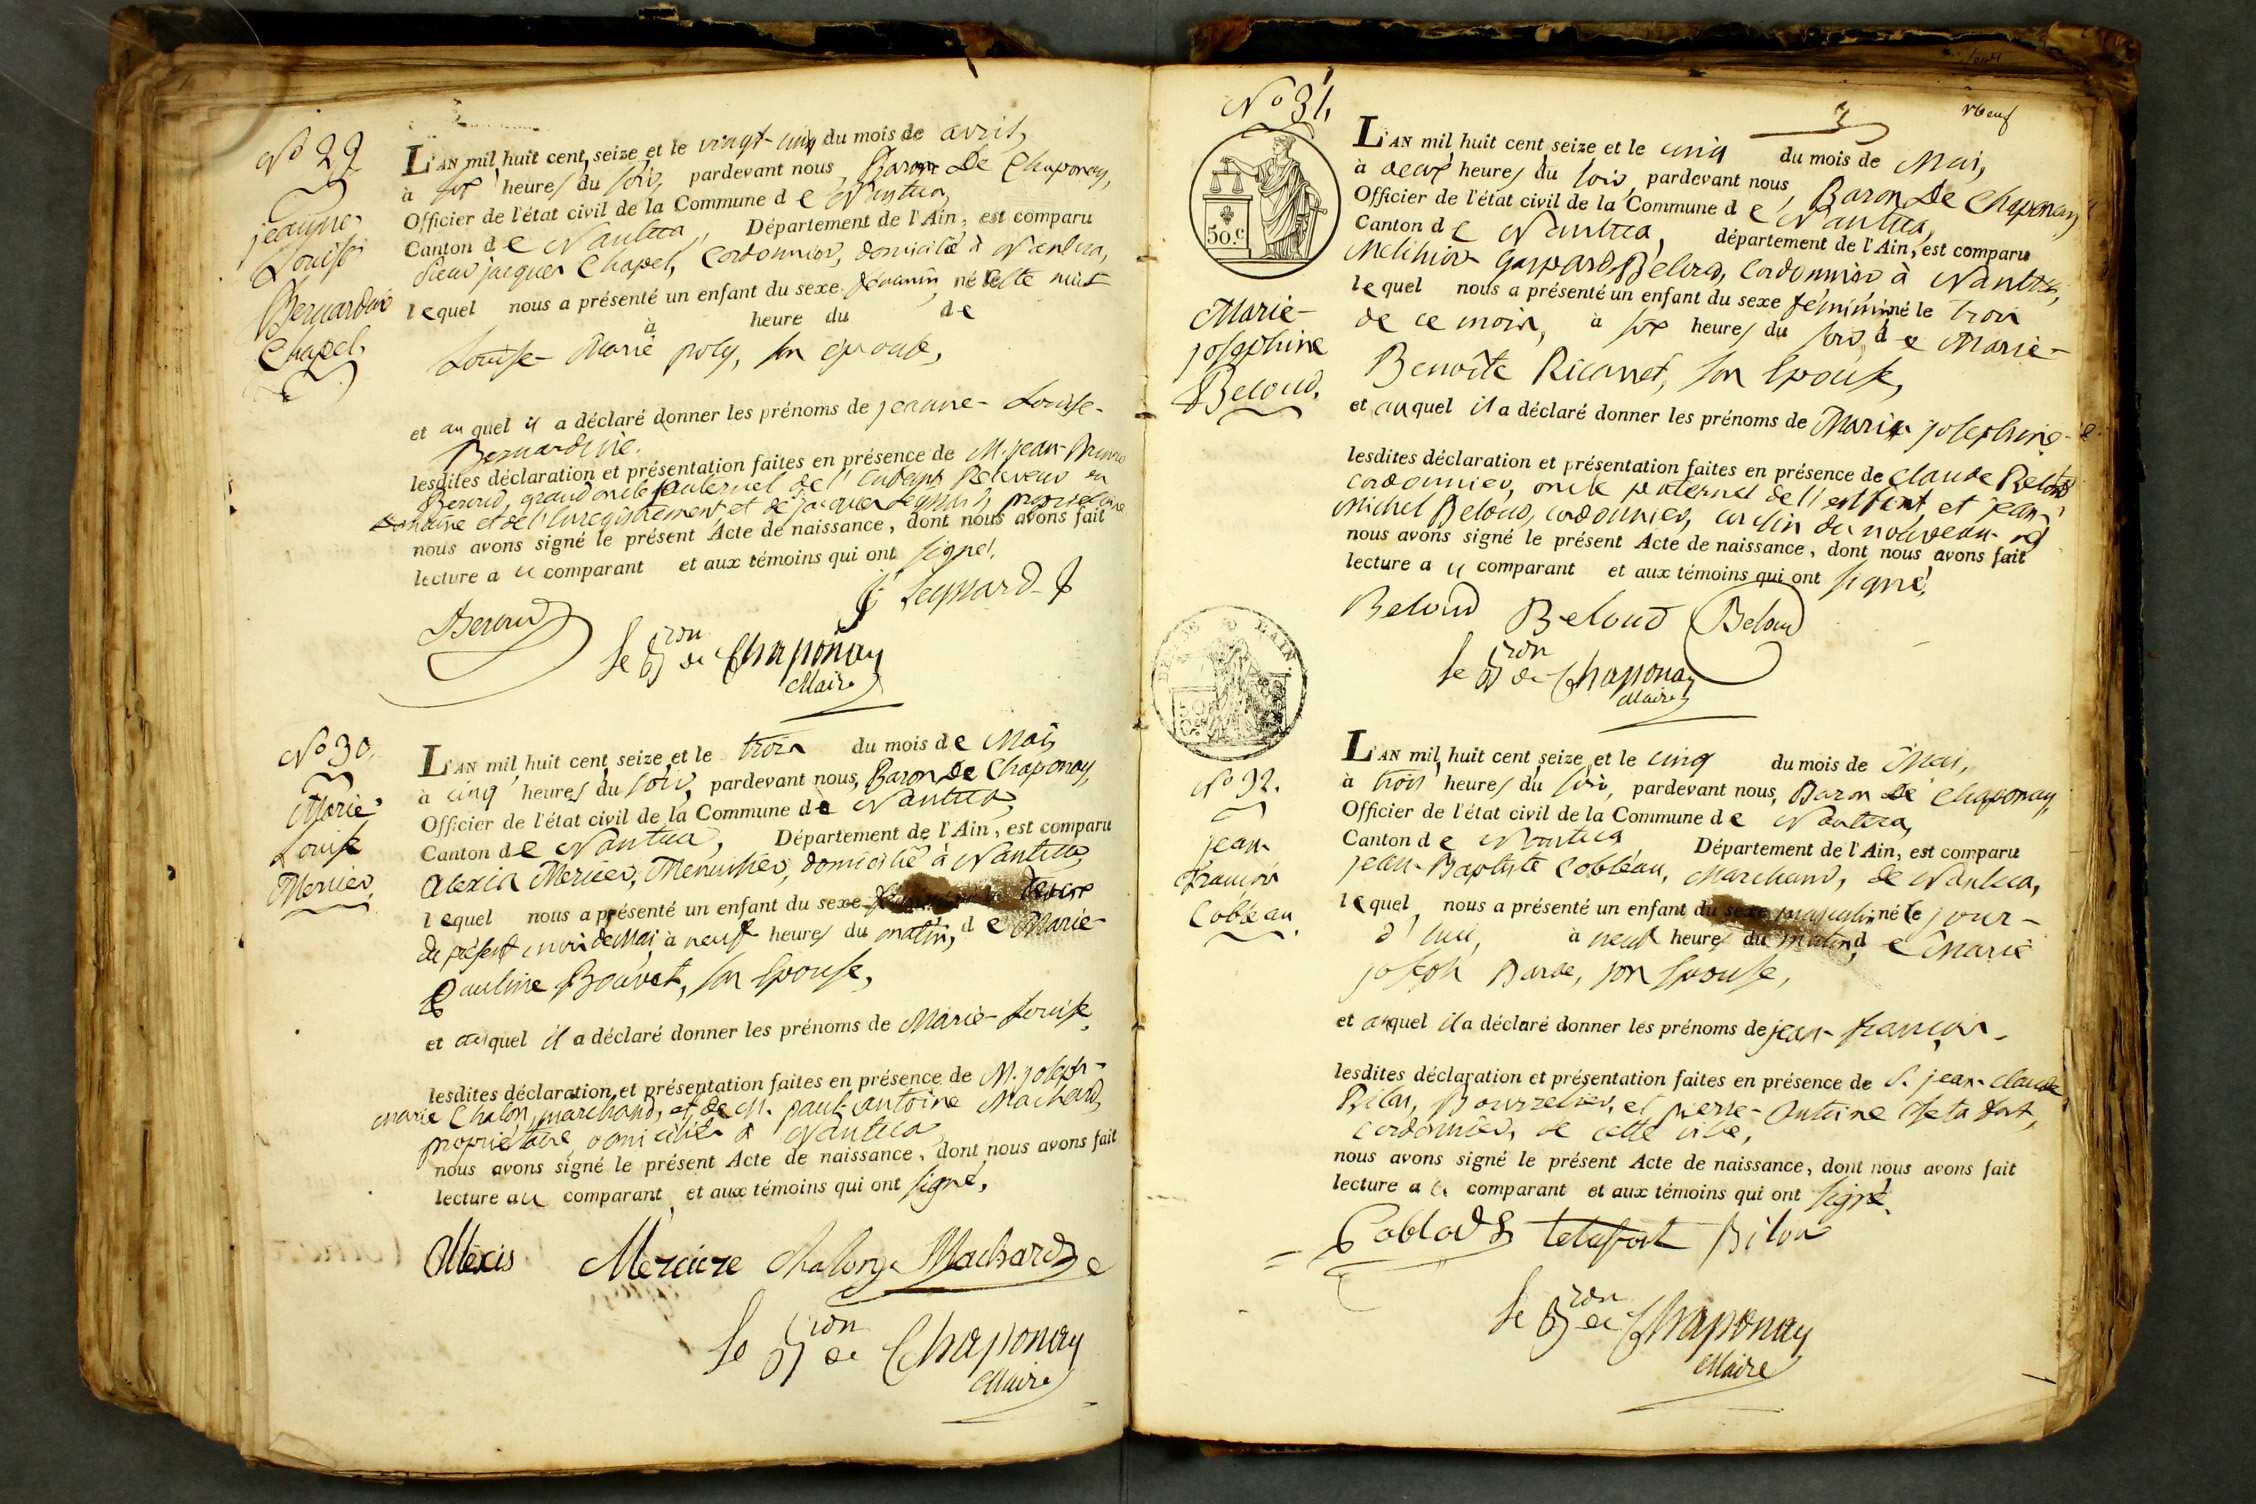 No 29
jeanne
Louise
Bernardine
Chapel.
L'AN mil huit cent seize et le vingt-cinq du mois de avril,
à six heures du soir, pardevant nous, Baron De Chaponay,
Officier de l'état civil de la Commune de Nantua,
Canton de Nantua, Département de l'Ain, est comparu
sieur jacques Chapel, Cordonnier, domicilié à Nantua,
lequel nous a présenté un enfant du sexe féminin, né cette nuit
à heure du de
Louise-Marie poly, son épouse,
et auquel il a déclaré donner les prénoms de jeanne-Louise-
Bernardine.
lesdites déclaration et présentation faites en présence de M. jean-
Beroud, grand oncle paternel de l'enfant, Receveur du
Domaine et de l'Enregistrement, et de jacques propriétaire
nous avons signé le présent Acte de naissance, dont nous avons fait
lecture au comparant et aux témoins qui ont signé.
Beroud
le Bron de Chaponay
Maire
No 30.
Marie
Louise
Mercier
L'AN mil huit cent seize et le trois du mois de Mai,
à cinq heures du soir, pardevant nous, Baron de Chaponay,
Officier de l'état civil de la Commune de Nantua,
Canton de Nantua, Département de l'Ain, est comparu
Alexis Mercier, Menuisier, domicilié à Nantua,
lequel nous a présenté un enfant du sexe
du présent mois de Mai à neuf heures du matin, de Marie-
Pauline Bouvet, son Epouse,
et auquel il a déclaré donner les prénoms de Marie-Louise
lesdites déclaration et présentation faites en présence de M. joseph-
marie Chalon, marchand, et de M. paul-antoine Machard,
propriétaire domiciliés à Nantua
nous avons signé le présent Acte de naissance, dont nous avons fait
lecture au comparant et aux témoins qui ont signé.
Alexis Merciere Chalon Machard
le Bron de Chaponay
Maire
No 31.
50.c
Marie-
josephine
Beloud.
L'AN mil huit cent seize et le cinq du mois de Mai,
à deux heures du soir, pardevant nous, Baron De Chaponay,
Officier de l'état civil de la Commune de Nantua,
Canton de Nantua, département de l'Ain, est comparu
Melchior Gaspard Beloud, Cordonnier à Nantua,
lequel nous a présenté un enfant du sexe féminin né le trois
de ce mois, à six heures du soir, de Marie-
Benoîte Ricannet, son Epouse,
et auquel il a déclaré donner les prénoms de Marie josephine
lesdites déclaration et présentation faites en présence de Claude Beloud
cordonnier, oncle paternel de l'enfant, et jean-
Michel Beloud, cordonnier, cousin du nouveau-né
nous avons signé le présent Acte de naissance, dont nous avons fait
lecture au comparant et aux témoins qui ont signé.
Beloud Beloud Beloud
le Bron de Chaponay
Maire
No 32.
jean
François
Cobleau.
L'AN mil huit cent seize et le cinq du mois de Mai,
à trois heures du soir, pardevant nous, Baron De Chaponay,
Officier de l'état civil de la Commune de Nantua,
Canton de Nantua Département de l'Ain, est comparu
jean-Baptiste Cobleau, Marchand, de Nantua,
lequel nous a présenté un enfant du sexe masculin né le jour-
d'hui, à neuf heures du matin, de Marie
joseph Barde, son Epouse,
et auquel il a déclaré donner les prénoms de jean-françois.
lesdites déclaration et présentation faites en présence de S. jean-claude
Bilon, Bourrelier, et pierre-Antoine
Cordonnier, de cette ville,
nous avons signé le présent Acte de naissance, dont nous avons fait
lecture au comparant et aux témoins qui ont signé.
Bilon
le Bron de Chaponay
Maire